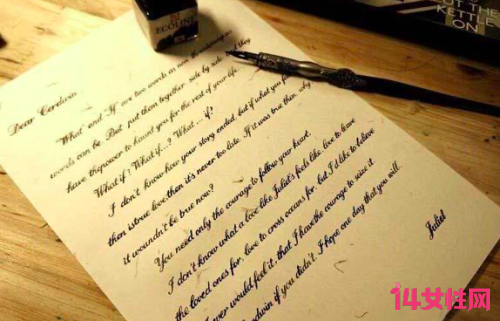 PUT THE
KETTLE
ON
ECOLINE
Dear Cerdwin
"What" and "If" are two words as non
words can be. But put them together side by side and they
have thepower to haunt you for the rest of your life.
What if? What if...? What ... if?
I don't know how your story ended, but if what you f
then istrue love,then it's never too late. If it was true then, why
it woundn't be true now?
You need only the courage to follow your heart.
I don't know what a love like Juliet's feels like, love to have
the loved ones for, love to cross oceans for, but I'd like to believe
ever would feel it, that I have the courage to seize it.
edwin if you didn't, I hope one day that you will.
Juliet
14女性网